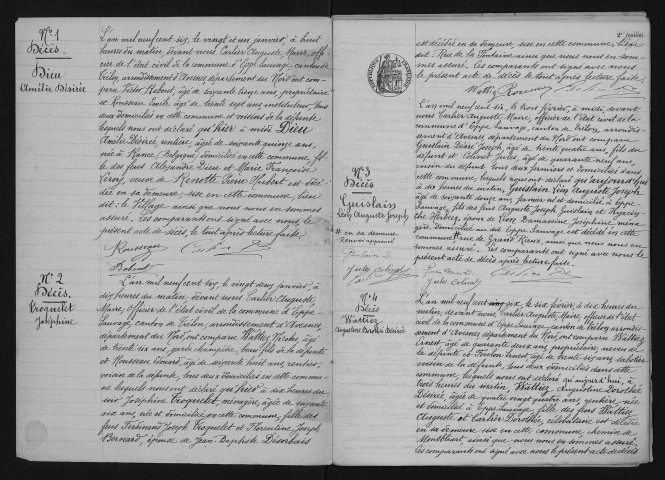 N° 1
Décès.
Dieu
Amélie Désirée
L'an mil neufcent six, le vingt et un janvier, à huit
heures du matin, devant nous Carlier Auguste Maire, offi-
cier de l'état civil de la commune d'Eppe Sauvage, canton de
Trélon, arrondissement d'Avesnes département du Nord ont com-
paru Victor Rabout, âgé de soixante ans, propriétaire
et Rousseau Emile âgé de trente sept ans instituteur, tous
deux domiciliés en cette commune et voisins de la défunte
lesquels nous ont déclaré qu'hier à midi Dieu
Amélie Désirée, rentière, âgée de soixante quinze ans,
née à Rance (Belgique) domiciliée en cette commune, fille
des feus Alexandre Dieu et Marie Françoise
Leroy, veuve de Pierre Hubert est décé-
dée en sa demeure sise en cette commune, lieu
dit: le Village ainsi que nous nous en sommes
assuré. Les comparants ont signé avec nous le
présent acte de décès le tout après lecture faite.
Rousseau
Rabout
N° 2
Décès.
Troquelet
Joséphine
L'an mil neufcent six, le vingt deux janvier, à
dix heures du matin, devant nous Carlier Auguste,
Maire, officier de l'état civil de la commune d'Eppe
Sauvage, canton de Trélon, arrondissement d'Avesnes
département du Nord, ont comparu Wattiez Nicolas, âgé
de trente six ans, garde champêtre, beau fils à la défunte
et Rousseau Edouard, âgé de soixante huit ans rentier,
voisin de la défunte, tous deux domiciliés en cette commu-
ne lesquels nous ont déclaré qu'hier à dix heures du
soir Joséphine Troquelet, ménagère, âgée de soixante
six ans, née et domiciliée en cette commune, fille des
feus Ferdinand Joseph Troquelet et Florentine Joseph
Bernard, épouse de Jean Baptiste Désorbais
2e feuillet
est décédée en sa demeure, sise en cette commune, lieu
dit: Rue de la Fontaine ainsi que nous nous en som-
mes assuré. Les comparants ont signé avec nous le
présent acte de décès le tout après lecture faite.
N° 3
Décès
Guislain
Léon Auguste Joseph
# en sa demeure
Renvoi approuvé
L'an mil neufcent six, le trois février, à midi devant
nous Carlier Auguste, Maire, officier de l'état civil de la
commune d'Eppe Sauvage, canton de Trélon, arrondis-
sement d'Avesnes département du Nord, ont comparu
Guislain Désiré Joseph, âgé de trente quatre ans, fils du
défunt et Colinet Jules, âgé de quarante neuf ans,
cousin du défunt tous deux journaliers et domiciliés en cette
commune, lesquels nous ont déclaré qu'aujourd'hui
à dix heures du matin, Guislain Léon Auguste Joseph
âgé de soixante onze ans, fermier né et domicilié à Eppe
Sauvage, fils des feus Auguste Joseph Guislain et
épouse de Joséphine ména-
gère, domiciliée au dit Eppe Sauvage est décédé en cette
commune # rue de Grand Rieux, ainsi que nous nous en
sommes assuré. Les comparants ont signé avec nous le
présent acte de décès après lecture faite.
Jules Colinet
N° 4
Décès
Wattiez
Augustine Dorothée Désirée
L'an mil neufcent six, le six février, à dix heures du
matin, devant nous Carlier Auguste, Maire, officier de l'état
civil de la commune d'Eppe Sauvage, canton de Trélon, arrondis-
sement d'Avesnes département du Nord, ont comparu Wattiez
Ernest âgé de quarante deux ans propriétaire, neveu de
la défunte et Toulon Ernest âgé de trente six ans
voisin de la défunte, tous deux domiciliés dans cette
commune, lesquels nous ont déclaré qu'aujourd'hui, à
trois heures du matin, Wattiez Augustine Dorothée
Désirée, âgée de quatre vingt quatre ans, rentière, née
et domiciliée à Eppe Sauvage fille des feus Wattiez
Auguste et Carlier Dorothée, célibataire est décédée
en sa demeure sise en cette commune chemin de
Montbliart, ainsi que nous nous en sommes assuré.
Les comparants ont signé avec nous le présent acte de décès